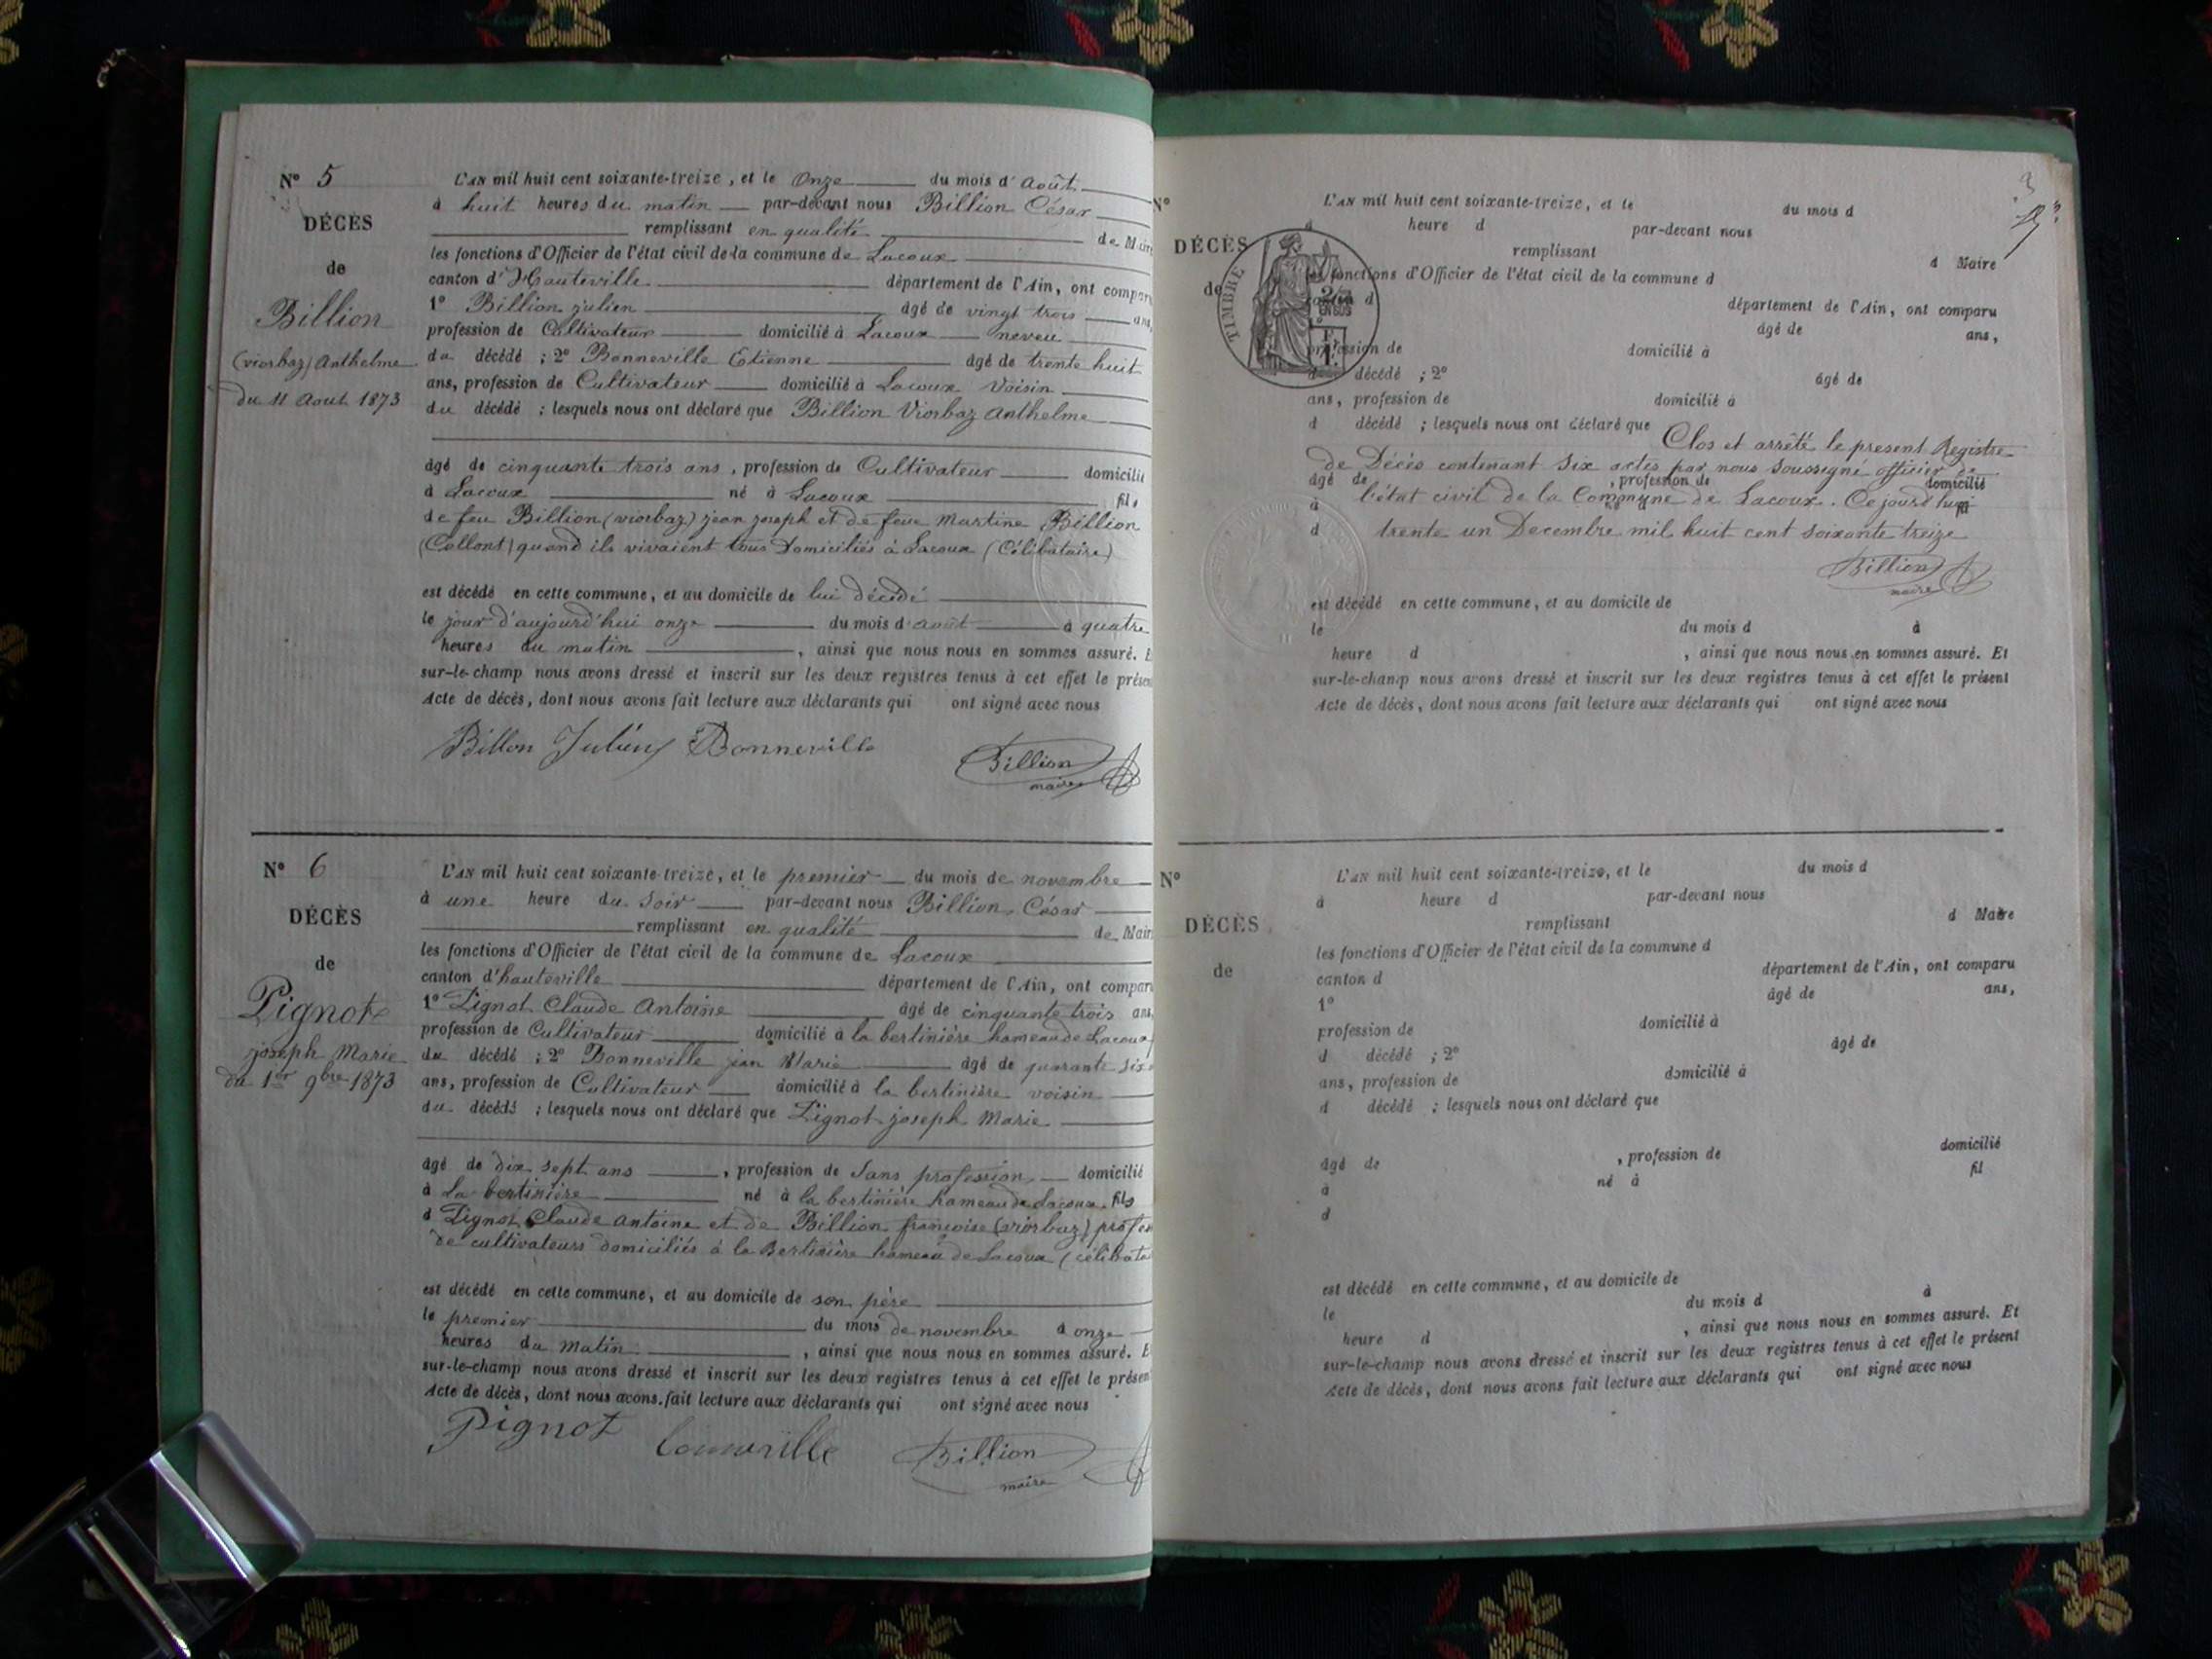 N° 5
DÉCÈS
de
Billion
(viorbaz) Anthelme
du 11 Aout 1873
L'AN mil huit cent soixante-treize, et le Onze du mois d'Août
à huit heures du matin par-devant nous Billion César
remplissant en qualité de Maire
les fonctions d'Officier de l'état civil de la commune de Lacoux
canton d'Hauteville département de l'Ain, ont compar
1° Billion julien âgé de vingt trois ans,
profession de Cultivateur domicilié à Lacoux neveu
du décédé ; 2° Bonneville Etienne âgé de trente huit
ans, profession de Cultivateur domicilié à Lacoux Voisin
du décédé ; lesquels nous ont déclaré que Billion Viorbaz Anthelme
âgé de cinquante trois ans, profession de Cultivateur domicilié
à Lacoux né à Lacoux fils
de feu Billion (viorbaz) jean joseph et de feue Martine Billion
(Collont) quand ils vivaient tous Domiciliés à Lacoux (Célibataire)
est décédé en cette commune, et au domicile de lui décédé
le jour d'aujourd'hui onze du mois d'août à quatre
heures du matin, ainsi que nous nous en sommes assuré. E
sur-le-champ nous avons dressé et inscrit sur les deux registres tenus à cet effet le présen
Acte de décès, dont nous avons fait lecture aux déclarants qui ont signé avec nous
Billon Julien Bonneville Billion
maire
N° 6
DÉCÈS
de
Pignot
joseph Marie
du 1er 9bre 1873
L'AN mil huit cent soixante-treize, et le premier du mois de novembre
à une heure du Soir par-devant nous Billion César
remplissant en qualité de Mair
les fonctions d'Officier de l'état civil de la commune de Lacoux
canton d'hauteville département de l'Ain, ont compar
1° Pignot Claude Antoine âgé de cinquante trois ans,
profession de Cultivateur domicilié à la bertinière hameau de Lacoux
du décédé ; 2° Bonneville jean Marie âgé de quarante six
ans, profession de Cultivateur domicilié à la bertinière voisin
du décédé ; lesquels nous ont déclaré que Pignot joseph Marie
âgé de dix sept ans, profession de Sans profession domicilié
à La bertinière né à la bertinière hameau de Lacoux fils
d Pignot Claude Antoine et de Billion françoise (viorbaz) profes
de cultivateurs domiciliés à la Bertinière hameau de Lacoux (célibatai
est décédé en cette commune, et au domicile de son père
le premier du mois de novembre à onze
heures du Matin, ainsi que nous nous en sommes assuré. E
sur-le-champ nous avons dressé et inscrit sur les deux registres tenus à cet effet le présen
Acte de décès, dont nous avons fait lecture aux déclarants qui ont signé avec nous
Pignot Billion
maire
3
N°
DÉCÈS
de
TIMBRE
L'AN mil huit cent soixante-treize, et le du mois d
heure d par-devant nous
remplissant d Maire
les fonctions d'Officier de l'état civil de la commune d
canton d département de l'Ain, ont comparu
âgé de ans,
profession de domicilié à
d décédé ; 2° âgé de
ans, profession de domicilié à
d décédé ; lesquels nous ont déclaré que
Clos et arrêté le present Registre
de Décès contenant Six actes par nous soussigné officier de
âgé de , profession de domicilié
l'état civil de la Commune de Lacoux. Ce jourd'hui
à né à fil
d trente un Decembre mil huit cent soixante treize
Billion
maire
est décédé en cette commune, et au domicile de
le du mois d à
heure d , ainsi que nous nous en sommes assuré. Et
sur-le-champ nous avons dressé et inscrit sur les deux registres tenus à cet effet le présent
Acte de décès, dont nous avons fait lecture aux déclarants qui ont signé avec nous
N°
DÉCÈS
de
L'AN mil huit cent soixante-treize, et le du mois d
à heure d par-devant nous
remplissant d Maire
les fonctions d'Officier de l'état civil de la commune d
canton d département de l'Ain, ont comparu
1° âgé de ans,
profession de domicilié à
d décédé ; 2° âgé de
ans, profession de domicilié à
d décédé ; lesquels nous ont déclaré que
âgé de , profession de domicilié
à né à fil
d
est décédé en cette commune, et au domicile de
le du mois d à
heure d , ainsi que nous nous en sommes assuré. Et
sur-le-champ nous avons dressé et inscrit sur les deux registres tenus à cet effet le présent
Acte de décès, dont nous avons fait lecture aux déclarants qui ont signé avec nous